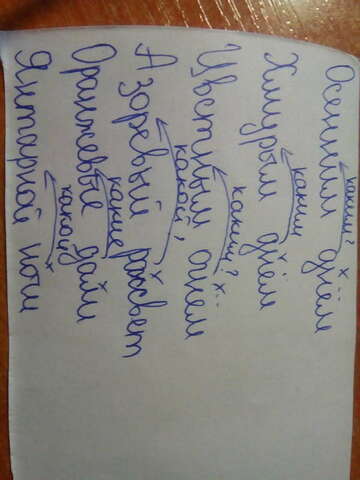 каким? x
Осенним днём
каким
Хмурым днём
каким? x
Цветным огнем
какой, x
А зоревый рассвет
какие x
Оранжевые дали
какой x
Янтарной ночи